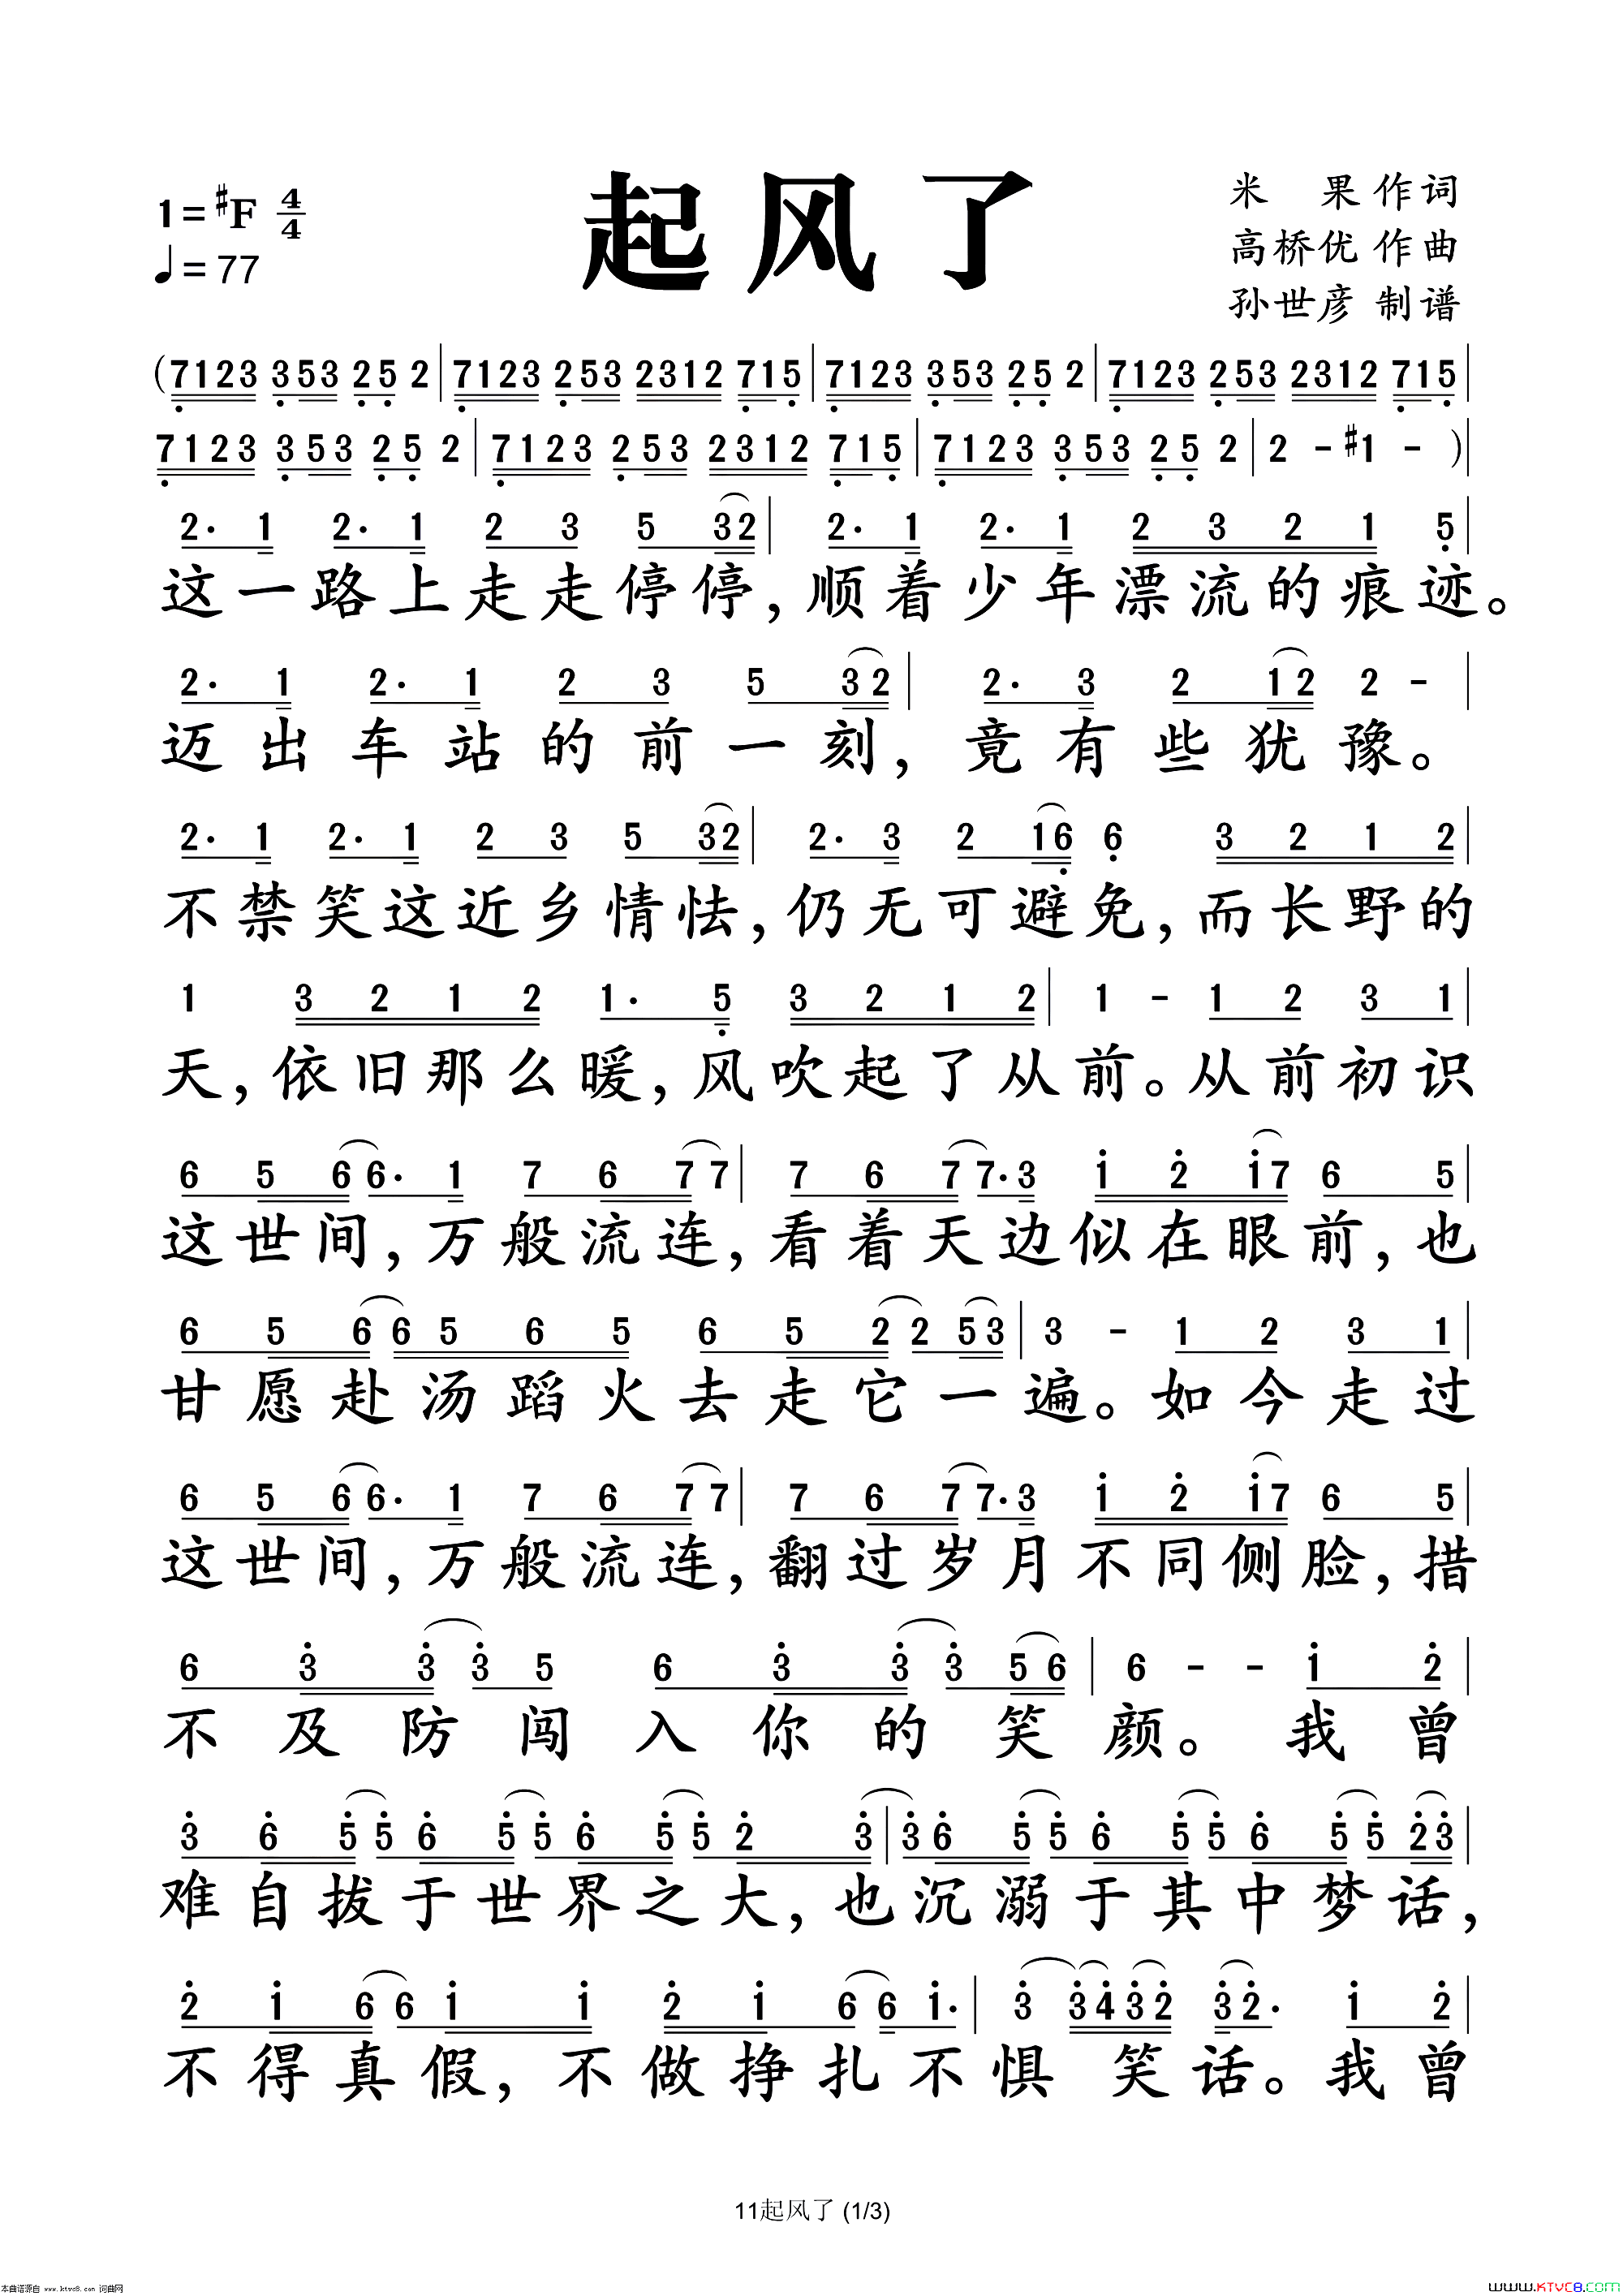 1=#F 4/4
♩=77
起风了
米 果 作词
高桥优 作曲
孙世彦 制谱
(7123 353 25 2|7123 253 2312 715|7123 353 25 2|7123 253 2312 715|
7123 353 25 2|7123 253 2312 715|7123 353 25 2|2 - #1 - )|
2· 1 2· 1 2 3 5 32| 2· 1 2· 1 2 3 2 1 5|
这一路上走走停停,顺着少年漂流的痕迹。
2· 1 2· 1 2 3 5 32| 2· 3 2 12 2 - |
迈出车站的前一刻,竟有些犹豫。
2· 1 2· 1 2 3 5 32| 2· 3 2 16 6 3 2 1 2|
不禁笑这近乡情怯,仍无可避免,而长野的
1 3 2 1 2 1· 5 3 2 1 2| 1 - 1 2 3 1|
天,依旧那么暖,风吹起了从前。从前初识
6 5 66· 1 7 6 77| 7 6 77·3 1 2 17 6 5|
这世间,万般流连,看着天边似在眼前,也
6 5 66 5 6 5 6 5 22 53|3 - 1 2 3 1|
甘愿赴汤蹈火去走它一遍。如今走过
6 5 66· 1 7 6 77| 7 6 77·3 1 2 17 6 5|
这世间,万般流连,翻过岁月不同侧脸,措
6 3 33 5 6 3 33 56| 6 - - 1 2|
不及防闯入你的笑颜。我曾
3 6 55 6 55 6 55 2 3|36 55 6 55 6 55 23|
难自拔于世界之大,也沉溺于其中梦话,
2 1 66 1 1 2 1 66 1·| 3 3432 32· 1 2|
不得真假,不做挣扎不惧笑话。我曾
11起风了 (1/3)
本曲谱源自 www.ktvc8.com 词曲网
WWW.KTVC8.COM